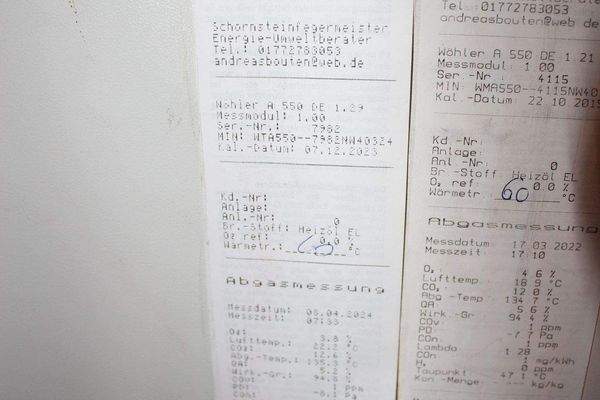 Schornsteinfegermeister
Energie-Umweltberater
Tel.: 01772783053
andreasbouten@web.de
Wöhler A 550 DE 1.29
Messmodul: 1.00
Ser.-Nr.: 7982
MIN: WTA550--7982NW40324
Kal.-Datum: 07.12.2023
Kd.-Nr:
Anlage:
Anl.-Nr: 0
Br.-Stoff: Heizöl EL
O₂ ref: 0,0 %
Wärmetr.: °C
Abgasmessung
Messdatum: 08.04.2024
Messzeit: 07:33
O₂: 3,8 %
Lufttemp.: 22,2 °C
CO₂: 12,6 %
Abg.-Temp.: 135,3 °C
QA: 5,2 %
Wirk.-Gr.: 94,8 %
1 ppm
-8,1 Pa
Tel.: 01772783053
andreasbouten@web.de
Wöhler A 550 DE 1.21
Messmodul: 1.00
Ser.-Nr.: 4115
MIN: WMA550--4115NW40
Kal.-Datum: 22.10.201
Kd.-Nr:
Anlage:
Anl.-Nr: 0
Br.-Stoff: Heizöl EL
O₂ ref: 0,0 %
Wärmetr.: 60 °C
Abgasmessung
Messdatum: 17.03.2022
Messzeit: 17:10
O₂: 4,6 %
Lufttemp: 18,9 °C
CO₂: 12,0 %
Abg.-Temp: 134,7 °C
QA: 5,6 %
Wirk.-Gr: 94,4 %
COv: 1 ppm
PD: -7,7 Pa
COn: 1 ppm
Lambda 1,28
COn: 1 mg/kWh
H₂ 0 ppm
Taupunkt 47,1 °C
Kon.-Menge: kg/kg